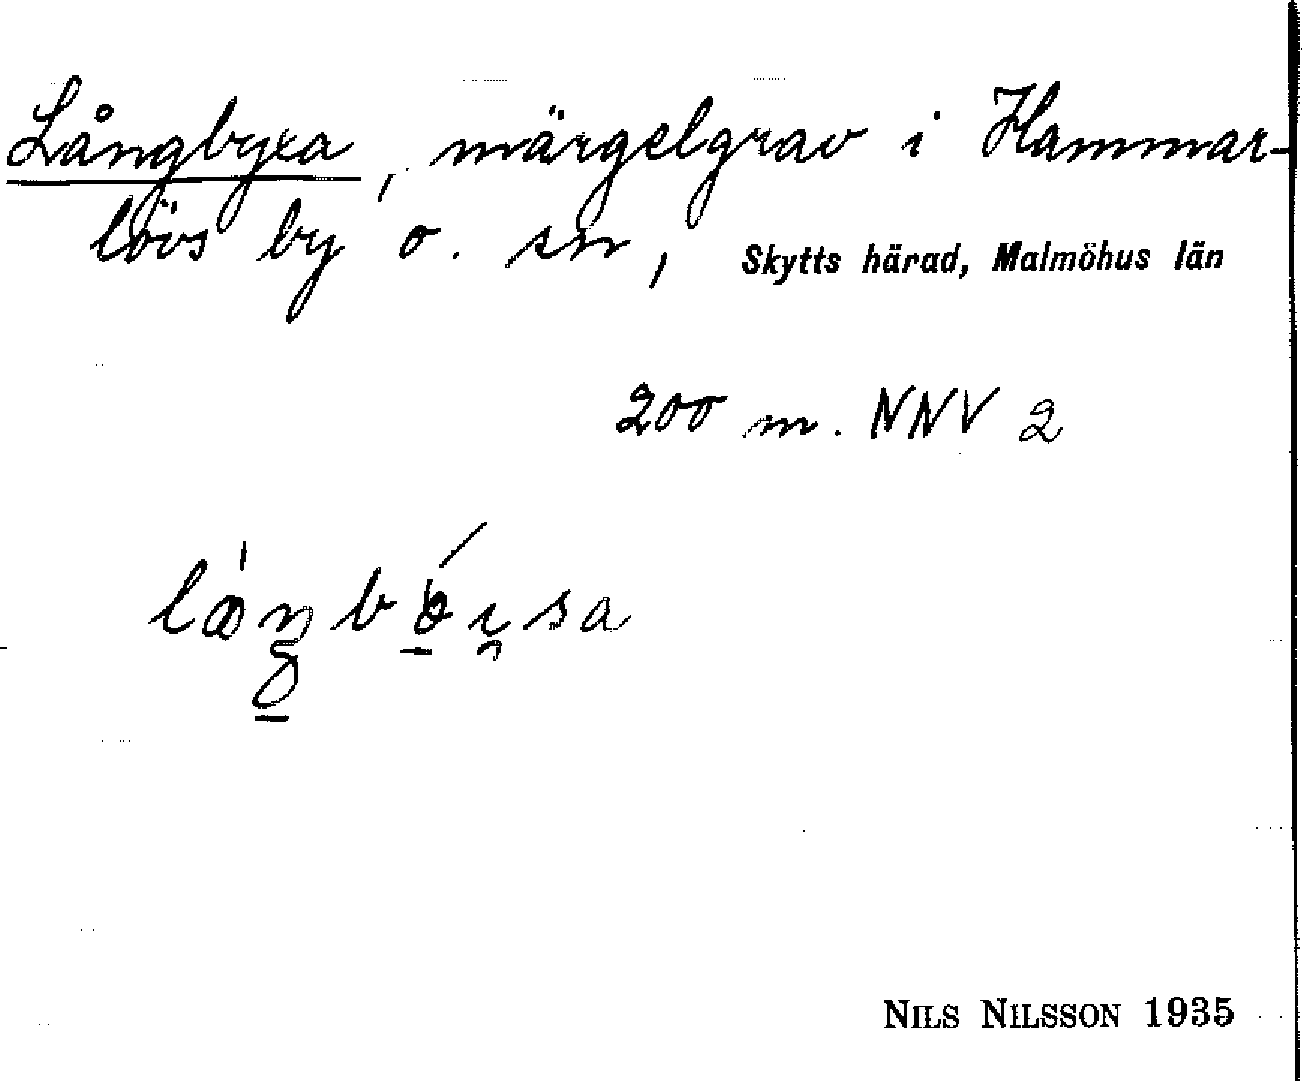 Långbyxa, märgelgrav i Hammar-
lövs by o. sn, Skytts härad, Malmöhus län
200 m. NNV 2
NILS NILSSON 1935